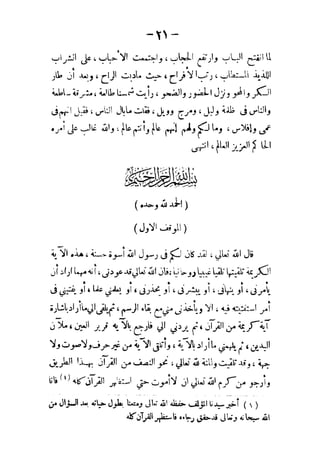 - ٢١ -
لما انفتح البـاب وارتفع الحجاب ، واجتمعت الأحباب ، على الشراب
اللذيذ المستطاب ، رتب الأفراح ، حيث مادبت الراح ، وبعد أن طار
السكر والمحو ونزل الحضور والصحو ، رأيت شمسنا طالعة ، مشرقة ـ ساطعة
والناس في ظلمة وليل ، وهرج وويل ، فقلت مابال الناس ، فقيل انهم في
عمى وإفلاس ، وما لكم ولهم إنهم عالم وأنتم عالم ، والله غالب على أمره
الحاكم العزيز العالم ، انتهى
بسم الله الرحمن الرحيم
( الحمد لله وحده )
( الموقف الاول )
قال الله تعالى ، لقد كان لكم في رسول الله أسوة حسنة ، هذه الآية
الكريمة تلقيتها تلقيا غيبيا روحانيا ، فان الله تعالى قد عودني ، أنه مهما اراد أن
يأمرني ، أو ينهاني ، أو يبشرني ، أو يحذرني ، أو يعلمني علما ، أو يفتيني في
أمر استفتيته فيه ، الا ويأخذني مني مع بقاء الرسم ، ثم يلقي الي ما أراد باشارة
آية كريمة من القرآن ، ثم يردني الي فارجع بالآية قرير العين ، وملآن
اليدين ، ثم يلهمني ما أراد بالآية ، وأتلقى الآية من غير حرف ولا صوت ولا
جهة ، وقد تلقيت والمنة لله تعالى ، نحو النصف من القرآن بهـذا الطريق
وأرجو من كرم الله تعالى ان لا أموت حتى استظهر القرآن كله (١) فانا
( ١ ) أخبر سيدنا المؤلف حفظه الله تعالى ومتعنا بطول حياته بعد السؤال من
الله سبحانه وتعالى قد حقق رجاءه فاستظهر القرآن كله